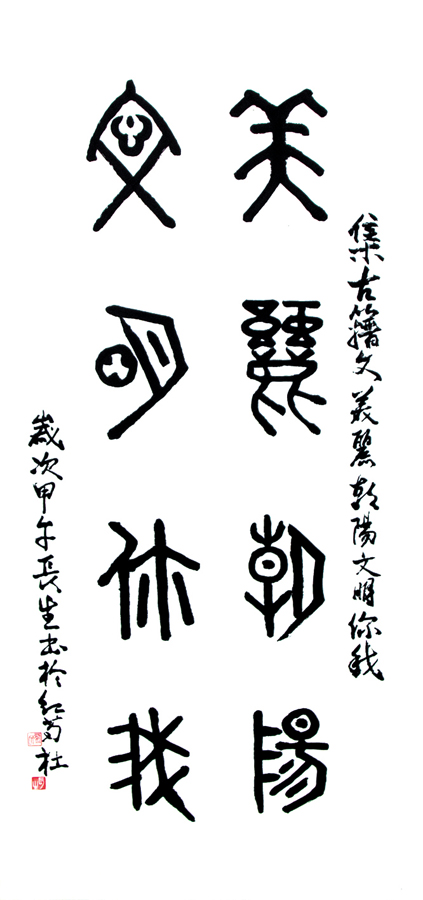 集古籀文美麗朝陽文明你我
美麗朝陽
文明你我
歲次甲午長生书於红社